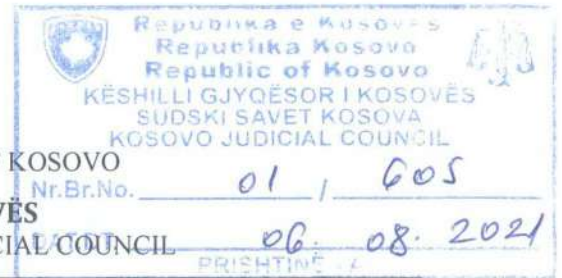 Republika e Kosovës
Republika Kosovo
Republic of Kosovo
KËSHILLI GJYQËSOR I KOSOVËS
SUDSKI SAVET KOSOVA
KOSOVO JUDICIAL COUNCIL
KOSOVO
Nr.Br.No. 01 / 605
VËS
CIAL COUNCIL 06. 08. 2021
PRISHTINË